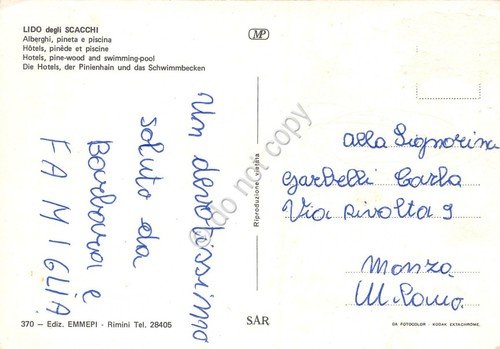 LIDO degli SCACCHI
Alberghi, pineta e piscina
Hôtels, pinède et piscine
Hotels, pine-wood and swimming-pool
Die Hotels, der Pinienhain und das Schwimmbecken
MP
Un devotissimo
saluto da
Barbara e
FAMIGLIA
Riproduzione vietata
do not copy
alla Signorina
Garbelli Carla
Via Rivolta 9
Monza
M.
370 — Ediz. EMMEPI - Rimini Tel. 28405
SAR
DA FOTOCOLOR - KODAK EKTACHROME.